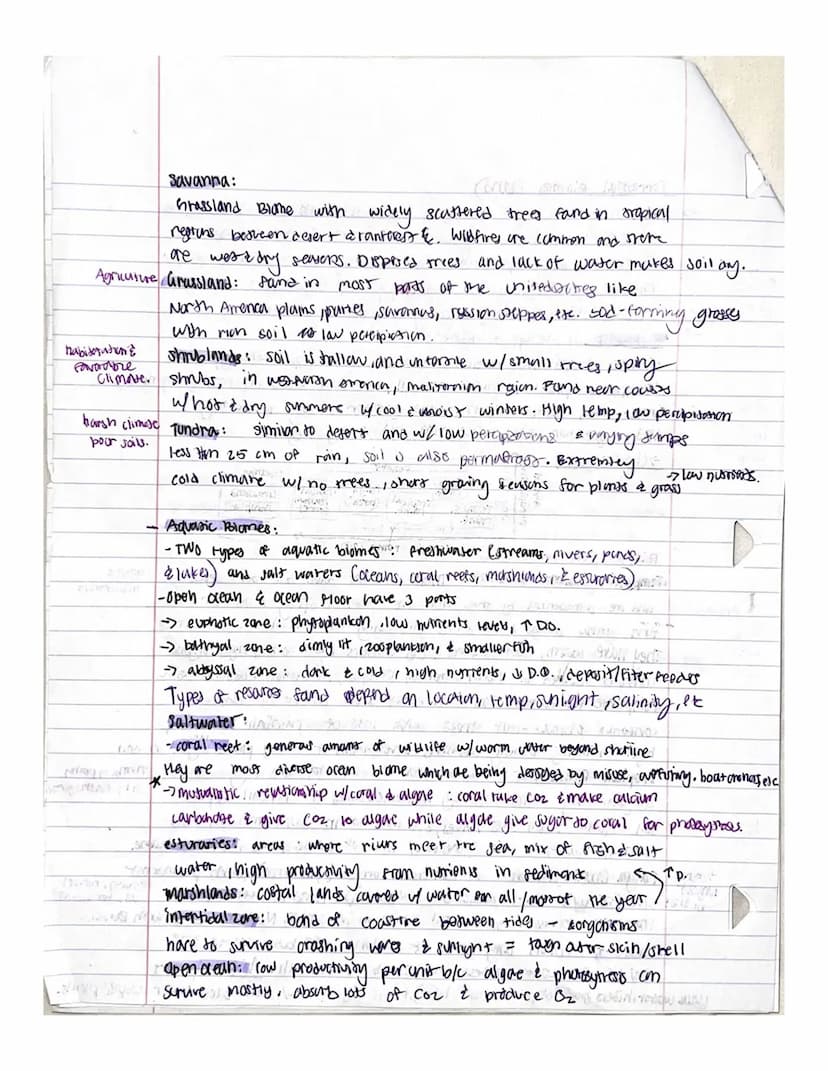 Savanna:
Grassland Biome with widely scattered trees fand in tropical
regions between desert & rainforest. Wildfires are common and there
are wet & dry seasons. Dispersed trees and lack of water makes soil dry.
Agriculture Grassland: fand in most parts of the united states like
North America plains, praries, savannas, russion steppes, etc. sod-forming grasses
with rich soil low percipiation.
habitation & favorable climate.
shrublands: soil is shallow, and unfertile w/ small trees, spiny
shrubs, in western america, region. Fand near
w/ hot & dry summers w/ cool & moist winters. High temp, low
harsh climate poor soils.
Tundra: similar to desert and w/ low & varying temps
less than 25 cm of rain, soil is also permafrost. Extremley
cold climate w/ no trees, short growing seasons for plants & grass → low nutrients.
- Aquatic Biomes:
- TWO types of aquatic biomes: Freshwater (streams, rivers, ponds,
& lakes) and salt waters (oceans, coral reefs, marshlands, & esturaries)
- open ocean & ocean floor have 3 parts
→ euphotic zone: low nutrients levels, ↑ D.O.
→ bathyal zone: dimly lit, zooplankton, & smaller fish
→ abyssal zone: dark & cold, high nutrients, ↓ D.O., deposit/filter feeders
Types of fand depend on location, temp, sunlight, salinity, etc
Saltwater:
- coral reef: amount of wildlife w/ warm water beyond shoreline
they are most diverse ocean biome which are being destroyed by misuse, overfishing, boat anchors etc
* → mutualistic relationship w/ coral & algae: coral take CO2 & make calcium
carbonate & give CO2 to algae while algae give sugar to coral for photosyntesis.
esturaries: areas where rivers meet the sea, mix of fresh & salt
water, high productivity from nutrients in sediments ↑ D.
marshlands: costal lands covered w/ water on all/most of the year
intertidal zone: band of coastline between tides - organisms
have to survive crashing waves & sunlight = tough outer skin/shell
open ocean: low productivity per unit b/c algae & photosyntesis can
survive mostly. absorb lots of CO2 & produce O2